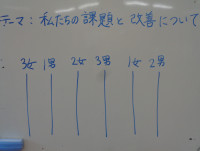 テーマ：私たちの課題と改善について
3女 1男 2女 3男 1女 2男